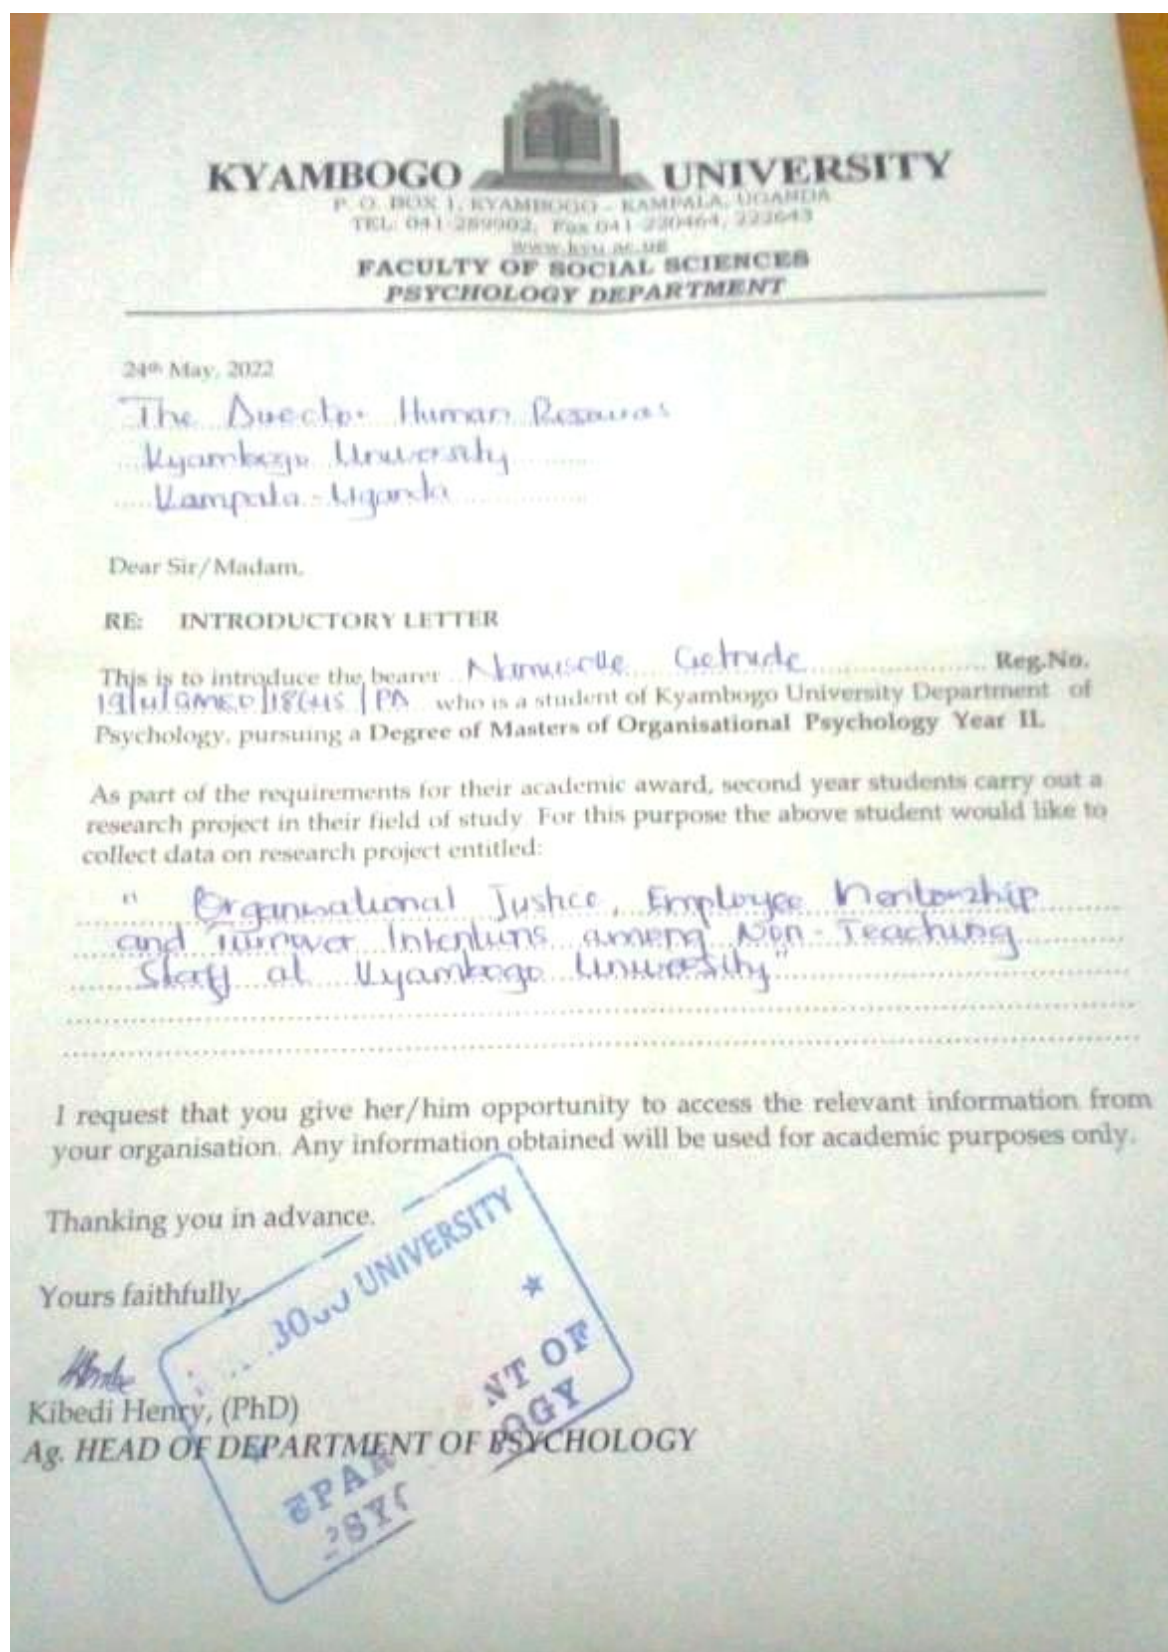 KYAMBOGO UNIVERSITY
P. O. BOX 1, KYAMBOGO - KAMPALA, UGANDA
TEL: 041-289902, Fax 041-220464, 222643
www.kyu.ac.ug
FACULTY OF SOCIAL SCIENCES
PSYCHOLOGY DEPARTMENT
24th May, 2022
The Director Human Resources
Kyambogo University
Kampala - Uganda
Dear Sir/Madam,
RE: INTRODUCTORY LETTER
This is to introduce the bearer Getrude Reg.No.
who is a student of Kyambogo University Department of
Psychology, pursuing a Degree of Masters of Organisational Psychology Year II.
As part of the requirements for their academic award, second year students carry out a
research project in their field of study. For this purpose the above student would like to
collect data on research project entitled:
" Organisational Justice, Employee Mentorship
and Turnover Intentions among Non-Teaching
Staff at Kyambogo University"
I request that you give her/him opportunity to access the relevant information from
your organisation. Any information obtained will be used for academic purposes only.
Thanking you in advance.
Yours faithfully,
UNIVERSITY
Kibedi Henry, (PhD)
Ag. HEAD OF DEPARTMENT OF PSYCHOLOGY